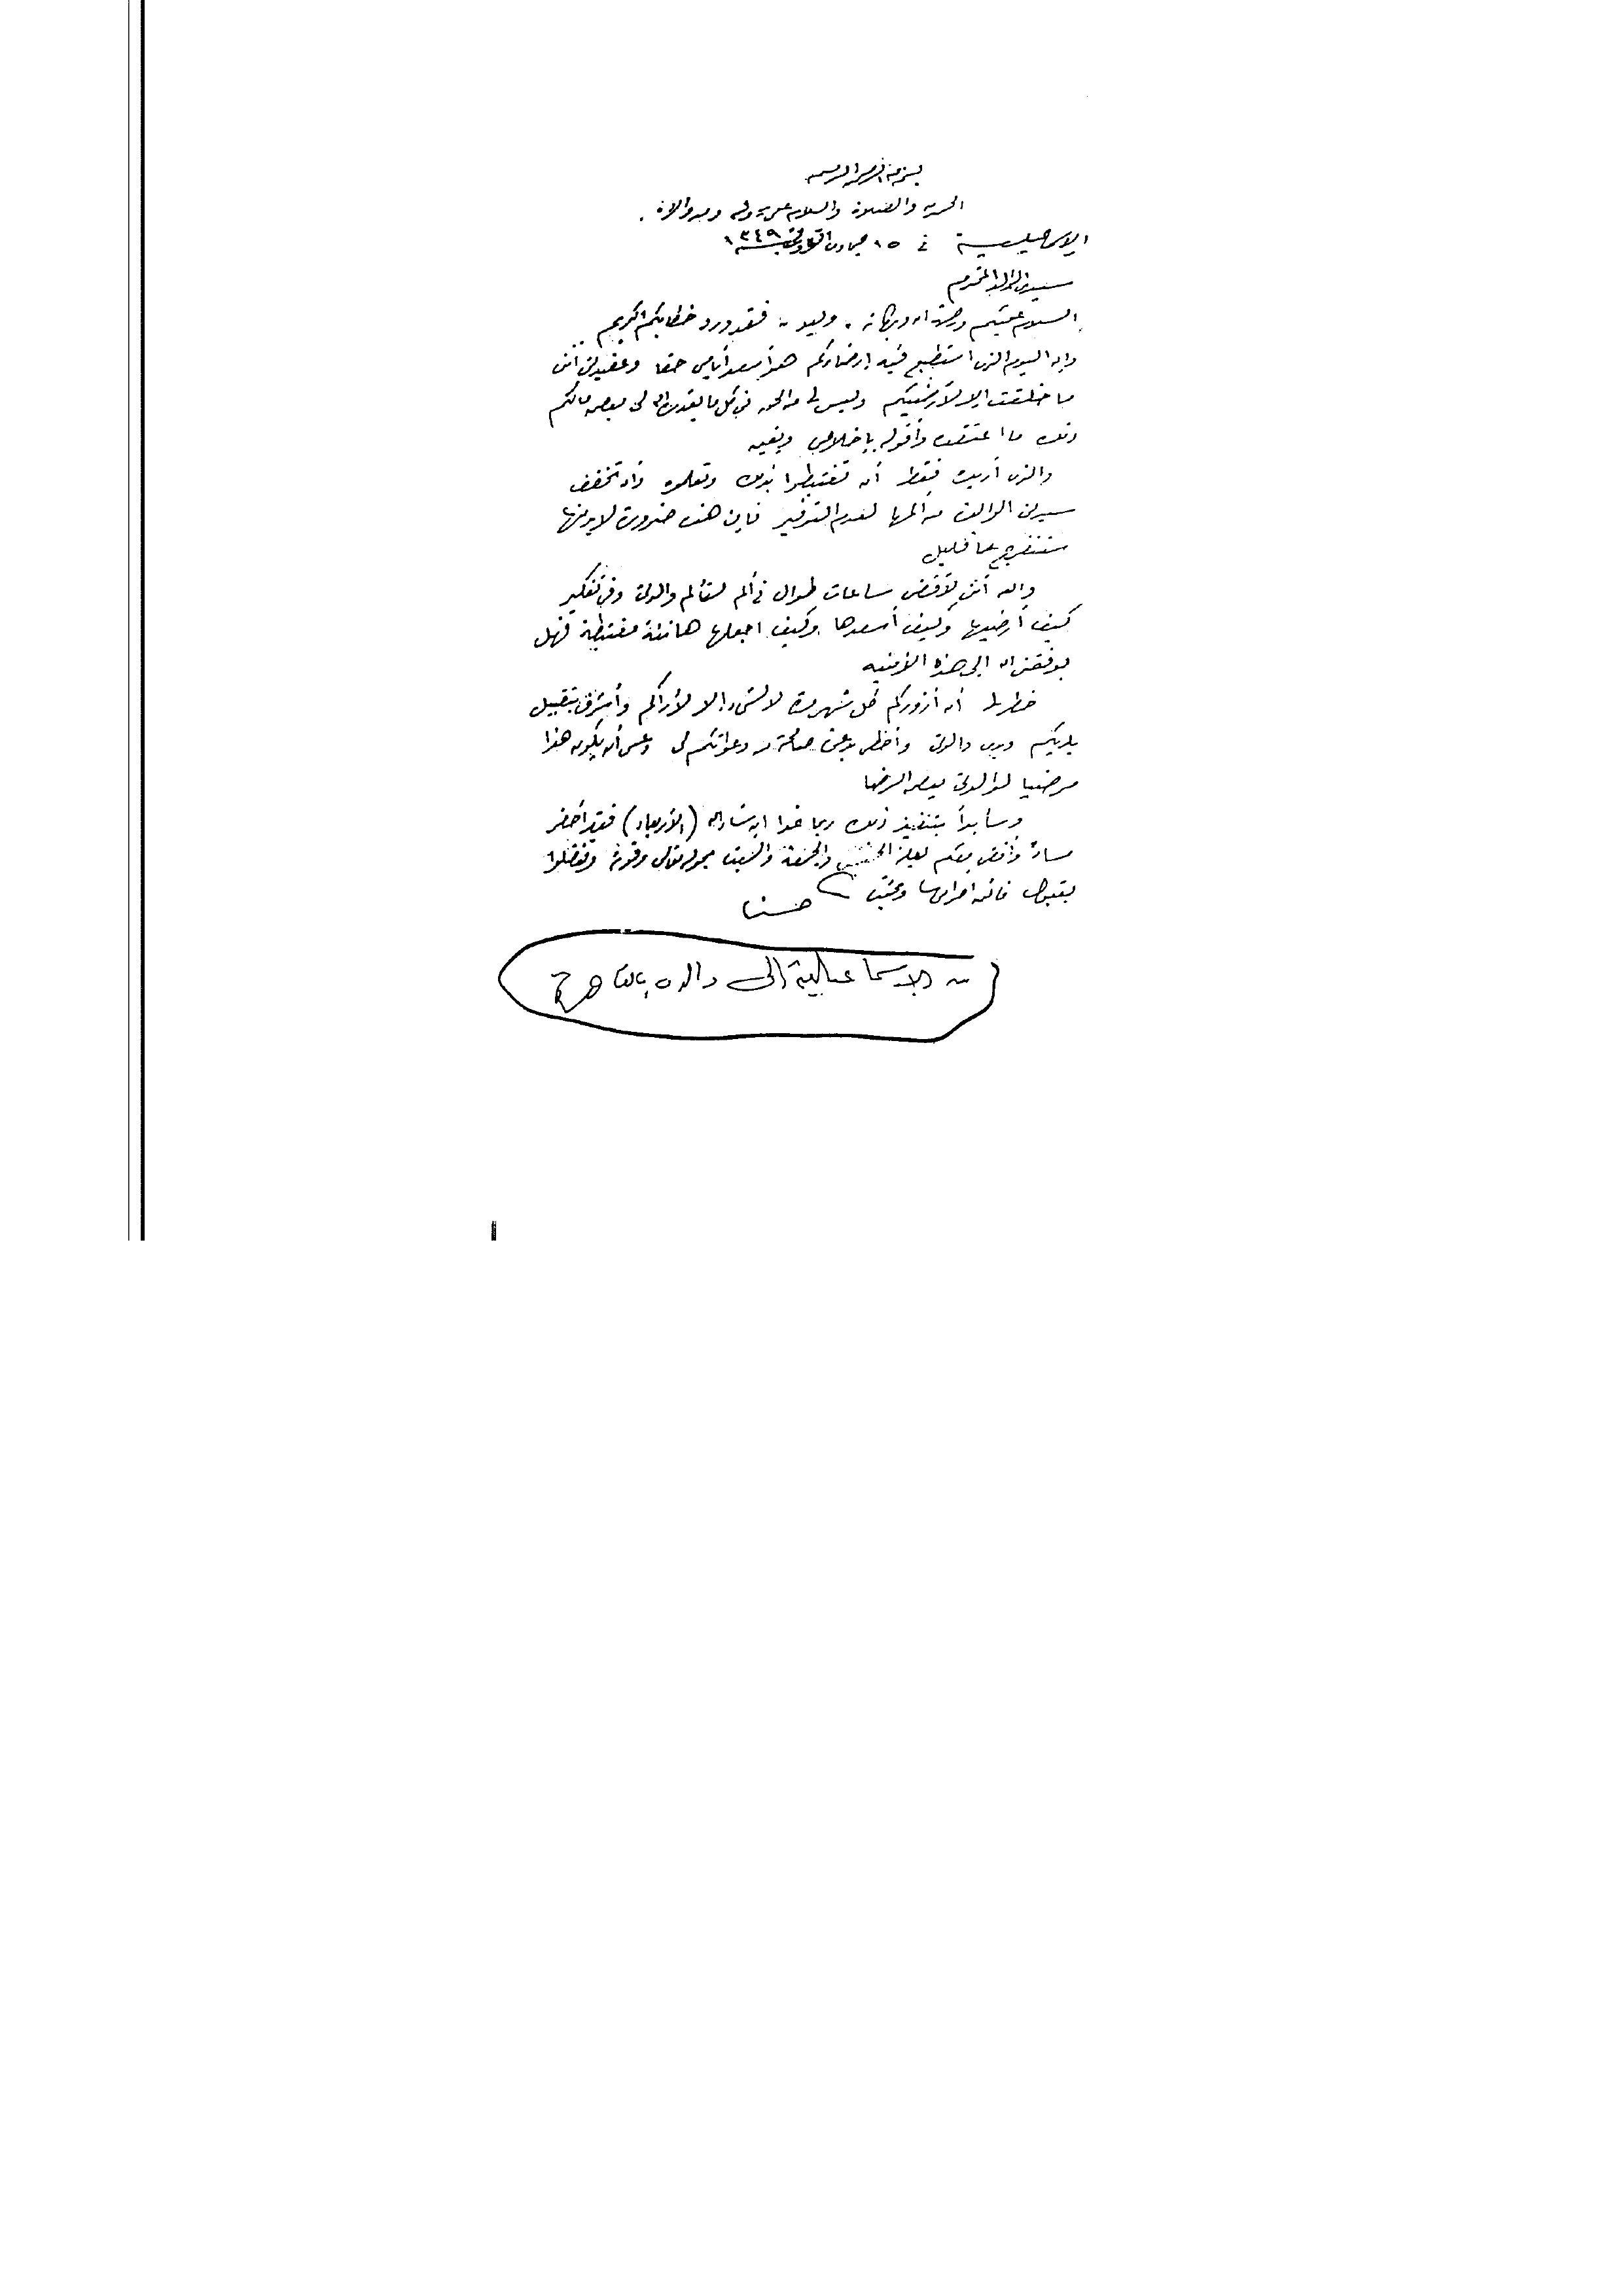 بسم الله الرحمن الرحيم
الحمد لله والصلاة والسلام على رسول الله ومن والاه .
الإسماعيلية في ١٥ جمادى ١٣٤٩
سيدي الوالد المحترم
السلام عليكم ورحمة الله وبركاته . وبعد :: فقد ورد خطابكم الكريم ..
وإن اليوم الذي استطيع فيه إرضاءكم هو أسعد أيامي حقا وعقيدتي أنني
ما خلقت إلا لأرضيكم وليس لي من الحق في كل ما يقدره الله لي بعض مالكم
ذلك ما اعتقده وأقوله بإخلاص ويقين
والذي أريده فقط أن تغتبطوا بذلك وتعلموه وأن تخفف
سيدتي الوالدة من ألمها لعدم التوفير فإن هذه ضرورة لا بد منها
ستنفرج عما قليل
والله أنني لأقضي ساعات طوال في ألم لتألم والدتي وفي تفكير
كيف أرضيها وكيف أسعدها وكيف اجعلها هانئة مغتبطة فهل
يوفقني الله إلى هذه الأمنية
خطر لي أن أزوركم كل شهر مرة لا لشيء إلا لأراكم وأتشرف بتقبيل
يديكم ويدي والدتي وأحظى بدعوة صالحة من دعواتكم لي وعسى أن يكون هذا
مرضيا لوالدتي بعض الرضا
وسأبدأ بتنفيذ ذلك ربما غدا إن شاء الله (الأربعاء) فقد أحضر
مساء وأقضي معكم ليلة الخميس والجمعة والسبت بحول الله تعالى وقوته وتفضلوا
بقبول فائق احترامي وتحيتي
حسن
من الإسماعيلية إلى والده بالقاهرة